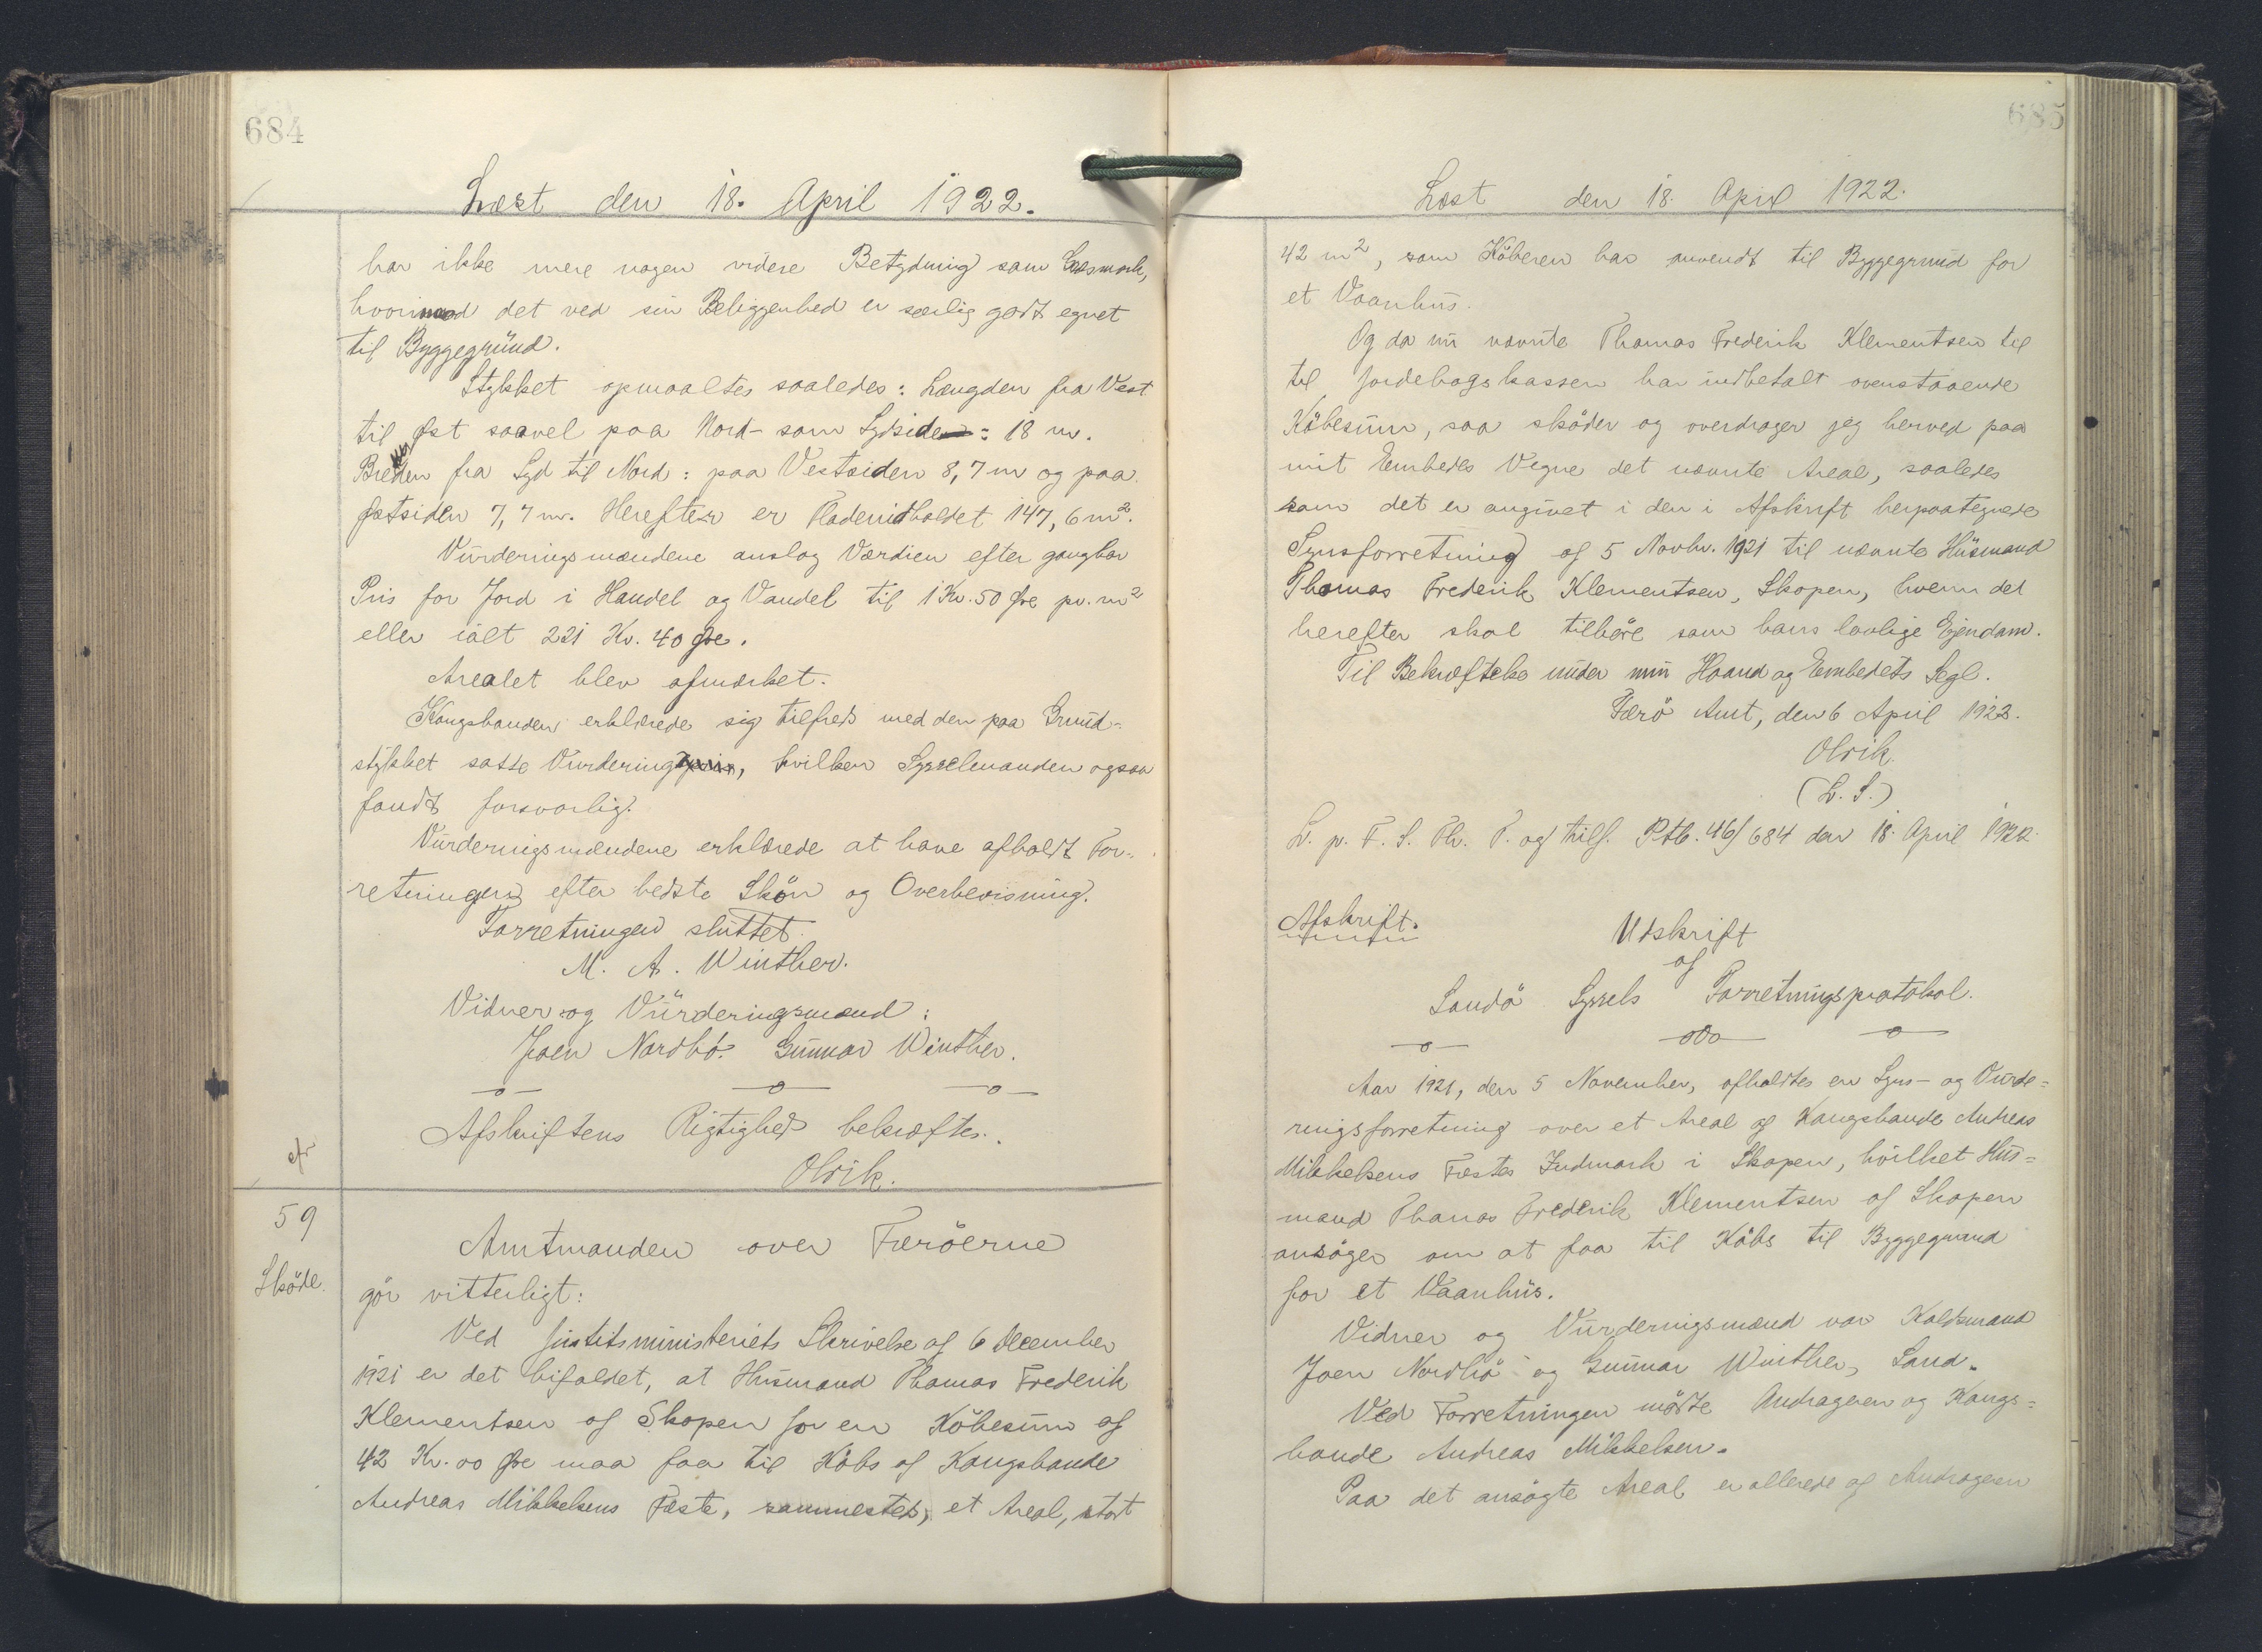 684
Læst den 18. April 1922.
har ikke mere nogen videre Betydning som Græsmark,
hvorimod det ved sin Beliggenhed er særlig godt egnet
til Byggegrund.
Stykket opmaaltes saaledes: Længden fra Vest
til Øst saavel paa Nord- som Sydside: 18 m.
Bredden fra Syd til Nord: paa Vestsiden 8,7 m og paa
Østsiden 7,7 m. Herefter er Fladeindholdet 147,6 m².
Vurderingsmændene anslog Værdien efter gangbar
Pris for Jord i Handel og Vandel til 1 Kr. 50 Øre pr. m²
eller ialt 221 Kr. 40 Øre.
Arealet blev afmærket.
Kongsbonden erklærede sig tilfreds med den paa Grund=
stykket satte Vurderingspris, hvilken Sysselmanden ogsaa
fandt forsvarlig.
Vurderingsmændene erklærede at have afholdt For=
retningen efter bedste Skön og Overbevisning.
Forretningen sluttet.
M. A. Winther.
Vidner og Vurderingsmænd:
Joen Nordbö. Gunnar Winther.
Afskriftens Rigtighed bekræftes.
Olrik.
59
Sköde.
Amtmanden over Færöerne
gör vitterligt:
Ved Justitsministeriets Skrivelse af 6 December
1921 er det bifaldet, at Husmand Thomas Frederik
Klementsen af Skopen for en Köbesum af
42 Kr. 00 Øre maa faa til Köbs af Kongsbonde
Andreas Mikkelsens Fæste, sammesteds, et Areal, stort
685
Læst den 18. April 1922.
42 m², som Köberen har anvendt til Byggegrund for
et Vaanhus.
Og da nu nævnte Thomas Frederik Klementsen til
til Jordebogskassen har indbetalt ovenstaaende
Köbesum, saa sköder og overdrager jeg herved paa
mit Embeds Vegne det nævnte Areal, saaledes
som det er angivet i den i Afskrift herpaategnede
Synsforretning af 5 Novbr. 1921 til nævnte Husmand
Thomas Frederik Klementsen, Skopen, hvem det
herefter skal tilhöre som hans lovlige Ejendom.
Til Bekræftelse under min Haand og Embedets Segl.
Færö Amt, den 6 April 1922.
Olrik.
(L. S.)
L. p. F. S. Th. T. og tilf. Ptb. 46/684 den 18. April 1922.
Afskrift.
Udskrift
af
Sandö Syssels Forretningsprotokol.
Aar 1921, den 5 November, afholdtes en Syns- og Vurde=
ringsforretning over et Areal af Kongsbonde Andreas
Mikkelsens Fæstes Indmark i Skopen, hvilket Hus=
mand Thomas Frederik Klementsen af Skopen
ansöger om at faa til Köbs til Byggegrund
for et Vaanhus.
Vidner og Vurderingsmænd var Koldsmand
Joen Nordbö og Gunnar Winther, Sand.
Ved Forretningen mödte Andrageren og Kongs=
bonde Andreas Mikkelsen.
Paa det ansögte Areal er allerede af Andrageren